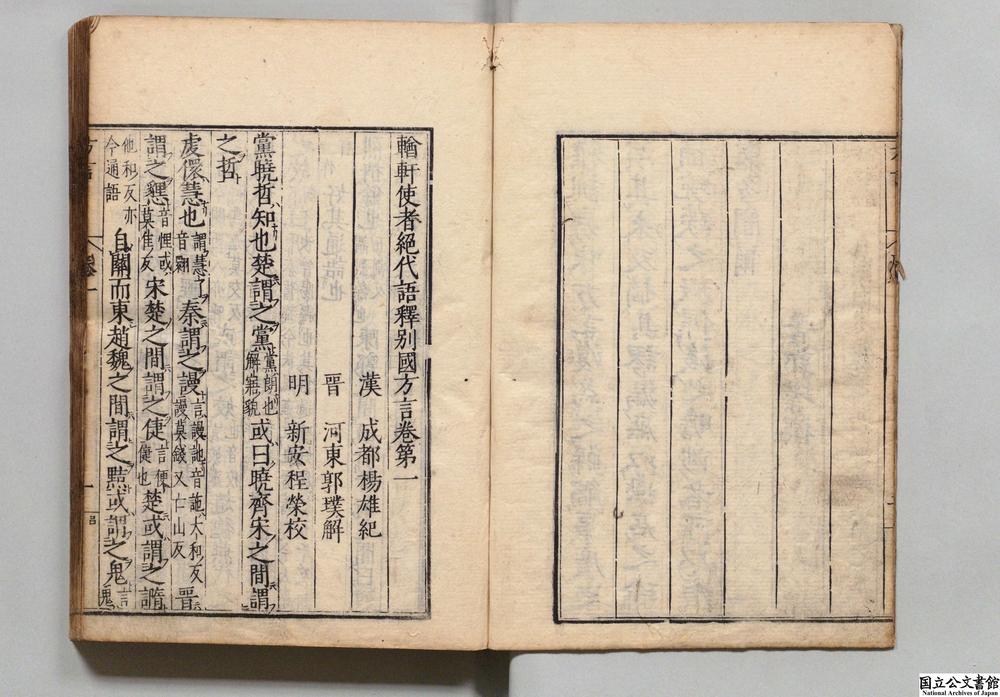 輶軒使者絕代語釋别國方言卷第一
漢　成都楊雄紀
晉　河東郭璞解
明　新安程榮校
黨曉哲知也楚謂之黨黨朗也解寤貌或曰曉齊宋之間謂
之哲
虔儇慧也謂慧了音翾秦謂之謾言謾訑音詑大和反謾莫錢又亡山反晉
謂之㦟音悝或莫佳反宋楚之間謂之倢言便倢也楚或謂之䜏
他和反亦今通語自關而東趙魏之間謂之黠或謂之鬼言鬼
方言
卷一
一
国立公文書館
National Archives of Japan